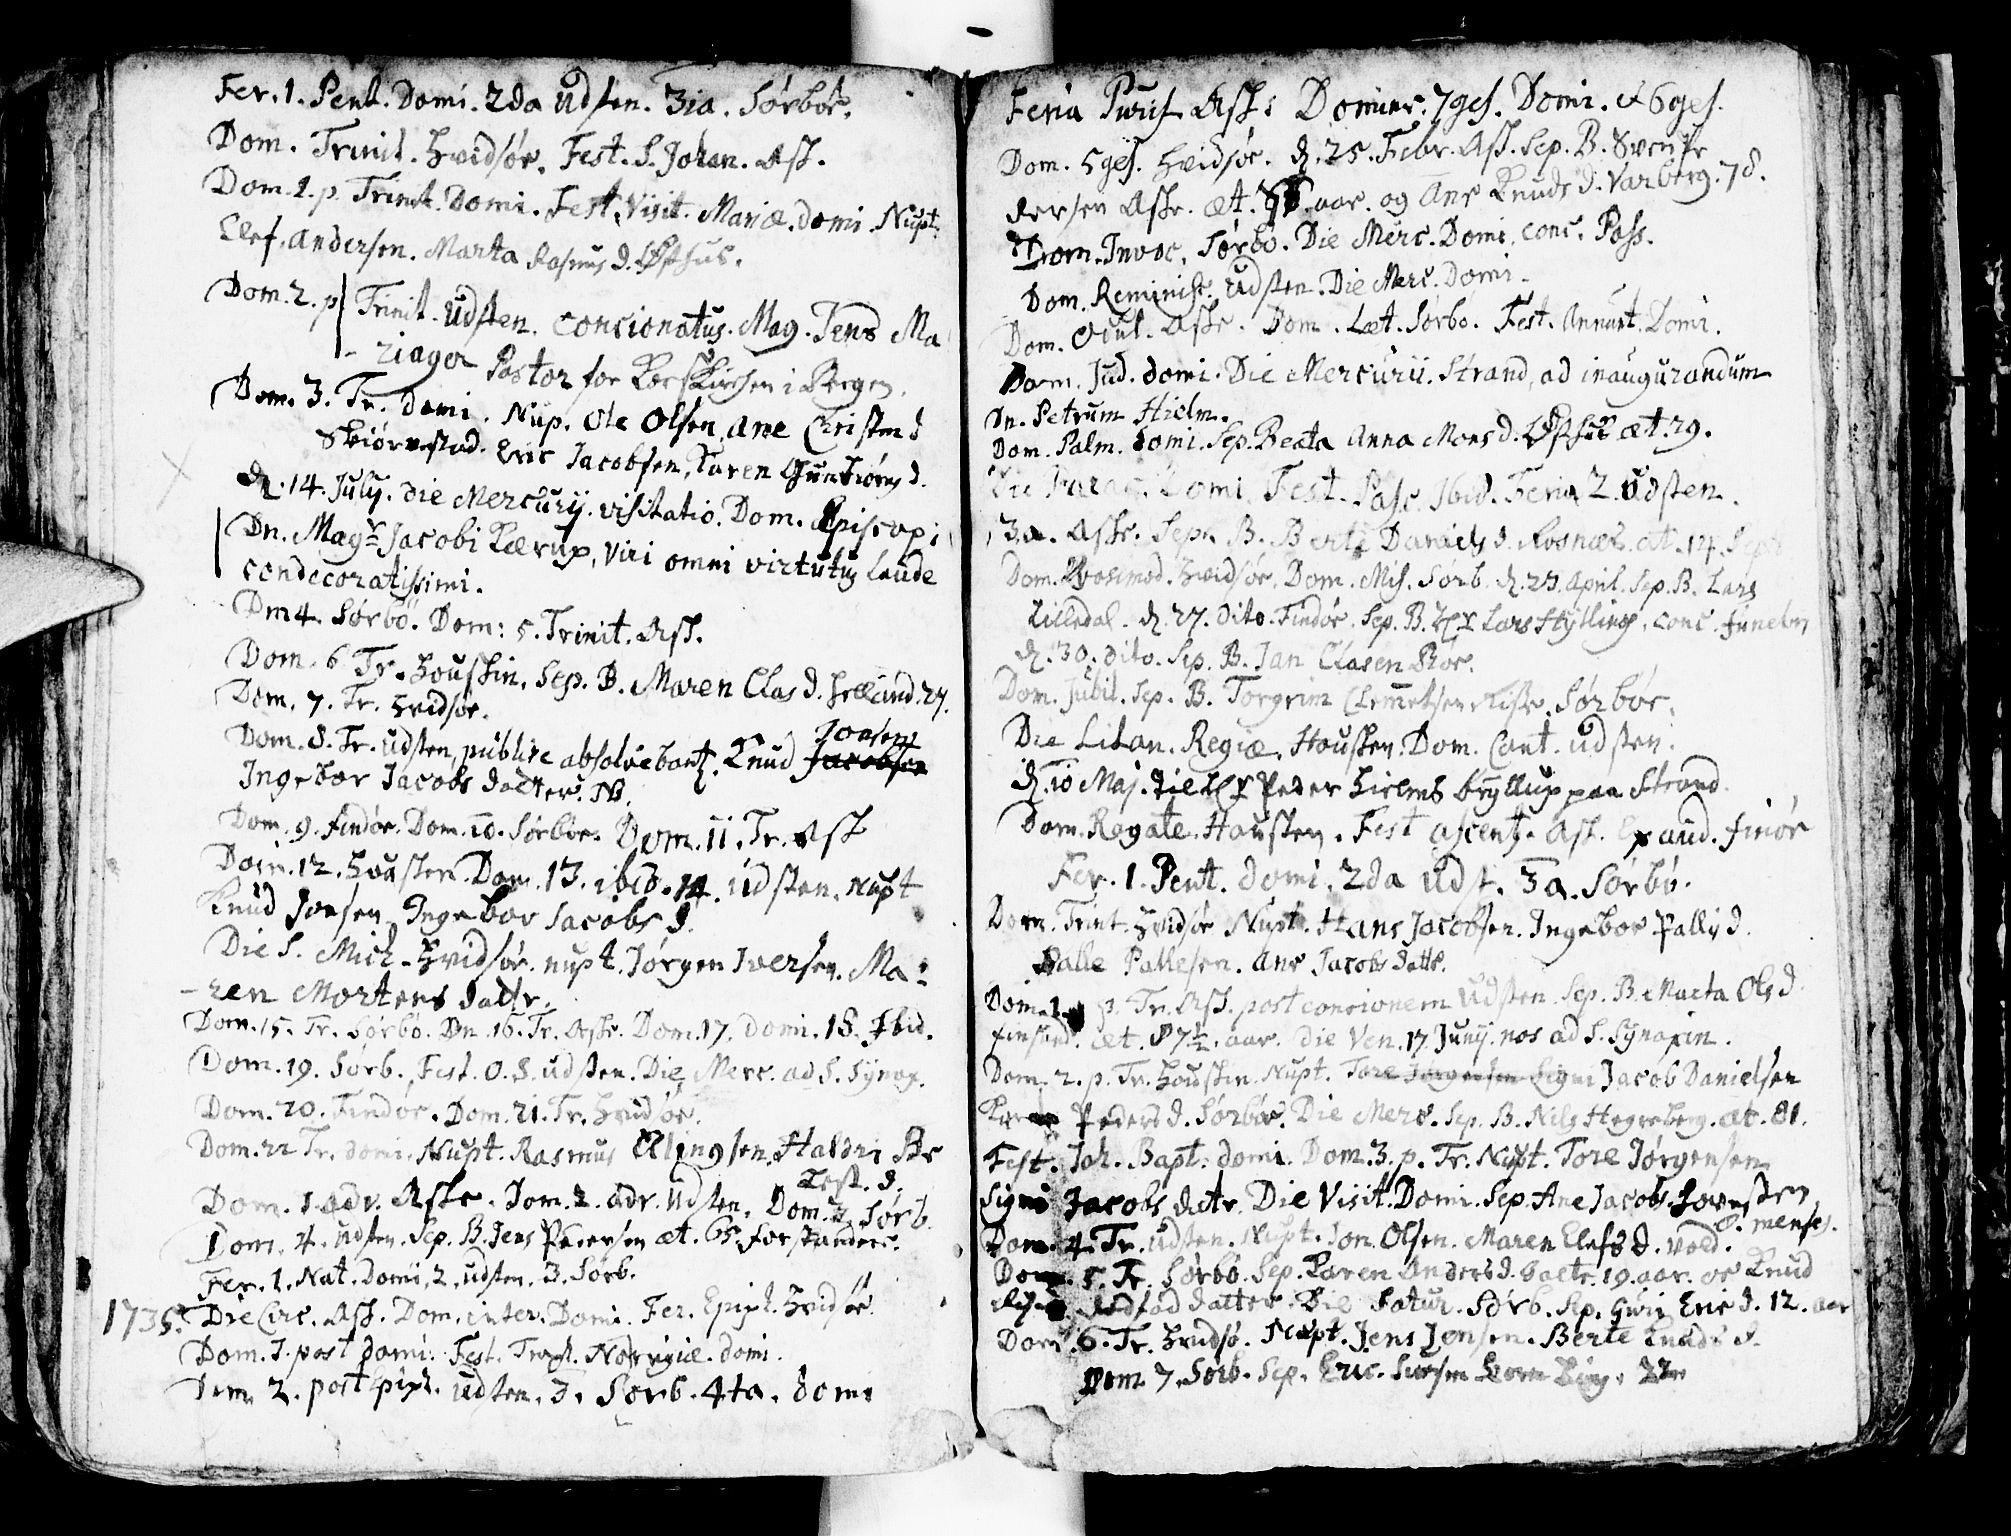 Fer. 1. Pent. Domi. 2da Udsten. 3ia. Sørbøe.
Dom. Trinit. Hvidsøe. Fest. S. Johan. Ask.
Dom. 1. p. Trinit. Domi. Fest. Visit. Mariæ. domi. Nupt.
Elef. Andersen. Marta Rasmus d. Østhus.
Dom. 2. p Trinit. Udsten. concionatus. Mag. Jens Ma
- ziager Pastor for Korskirken i Bergen.
Dom. 3. Tr. domi. Nup. Ole Olsen, Ane Christen d
Skiørvestad. Eric Jacobsen, Karen d.
d. 14. July. die Mercurij. visitatio. Dom. Episcopi
Dn. Magr Jacobi Kærup, viri omni virtutis laude
condecoratissimi.
Dm 4. Sørbø. Dom: 5. Trinit. Ask.
Dom. 6 Tr. Houskin. Sep. B. Maren Clas d. Helland. 27.
Dom. 7. Tr. Hvidsøe.
Dom. 8. Tr. Udsten, publice absolvebant. Knud Jacobsen Joesen
Ingebor Jacobs datter. NB.
Dom. 9. Findøe. Dom. 10. Sørbøe. Dom. 11. Tr. Ask
Dom. 12. Housken. Dom. 13. ibid. 14. Udsten. Nupt
Knud Joesen, Ingebor Jacobs d.
Die S. Mich. Hvidsøe. nupt. Jørgen Iversen. Ma:
- ren Mortens datr.
Dom. 15. Tr. Sørbø. Dn. 16. Tr. Aske. Dom. 17. domi. 18. Ibid.
Dom. 19. Sørb. Fest. O. S. Udsten. Die Merc. ad S. Synax.
Dom. 20. Findøe. Dom. 21. Tr. Hvidsøe.
Dom. 22 Tr. domi. Nupt. Rasmus Haldri
d.
Dom. 1. adv. Aske. Dom. 2. adv. Udsten. Dom. 3 Sørb.
Dom. 4. Udsten. Sep. B. Jens Pedersen æt. 65. forstanders.
Fer. 1. Nat. Domi. 2. Udsten. 3. Sørb.
1735. Die Circ. Ask. Dom. inter. Domi. Fer. Epiph. Hvidsøe.
Dom. I. post domi. Fest. Norvigie. domi.
Dom. 2. post piph. Udsten. 3. Sørb. 4ta. domi
Feria Purif. Ask: Domin. 7ges. Domi. & 6ges.
Dom. 5ges. Hvidsøe. d. 25. Febr. Ask. Sep. B.
dersen Aske. æt. aar. og Ane Knuds d. Varberg. 78.
Dom. Invoc. Sørbø. Die Merc. Domi. conc. Pass.
Dom. Reminisc. Udsten. Die Merc. Domi.
Dom. Ocul. Aske. Dom. Læt. Sørbø. Fest. Annunt. Domi.
Dom. Jud. domi. Die Mercurii. Strand, ad inaugurandum
Dn. Petrum Hielm.
Dom. Palm. domi. Sep. Beata Anna Mons d. Østhus æt. 29.
Die Domi. Fest. Pasc. Ibid. Feria 2. Udsten.
3a. Aske. Sep. B. Berte Daniels d. Rosnæs. æt. 14.
Dom. Qvasimod. Hvidsøe. Dom. Mis. Sørb. d. 23. April. Sep. B. Lars
Lilledal. d. 27. dito. Findøe. Sep. B. Hr Lars Hylling. conc. funebri
d. 30. dito. Sep. B. Jan Clasen
Dom. Jubil. Sep. B. Torgrim Clemmetsen Aske. Sørbøe.
Die Litan. Regiæ. Housken. Dom. Cant. Udsten.
d. 10 Maj. til Hr Peder Hielms bryllup paa Strand.
Dom. Rogate. Housken. Fest ascent. Ask. Exaud. finøe
Fer. 1. Pent. domi. 2da Udst. 3a. Sørbø.
Dom. Trint. Hvidsøe Nupt. Hans Jacobsen. Ingebor Pallis d.
Palle Pallesen. Ane Jacobs datt.
Dom. 1. p. Tr. Ask. post concionem Udsten. Sep. B. Marta Ols d
æt. 87½. aar. Die Ven. 17 Junij. nos ad S. Synaxin.
Dom. 2. p. Tr. Houskin. Nupt. Tore Jørgensen Signi Jacob Danielsen
Karen Peders d. Sørbøe. Die Merc. Sep. B. Nils Hegreberg. æt. 81.
Fest. Joh. Bapt. domi. Dom. 3. p. Tr. Nupt. Tore Jørgensen
Signi Jacobs datr. Die Visit. Domi. Sep. Ane Jacobs
8. menses.
Dom. 4. Tr. Udsten. Nupt. Jon Olsen. Maren Elefs d. Vold.
Dom. 5. Tr. Sørbø. Sep. Karen Anders d. datr. 19. aar. oc Knud
datter. Die Satur. Sørb. Sep. Guri Eric d. 12. aar
Dom. 6. Tr. Hvidsø. Nupt. Jens Jensen. Berte Knuds d.
Dom 7. Sørb. Sep. Eric.